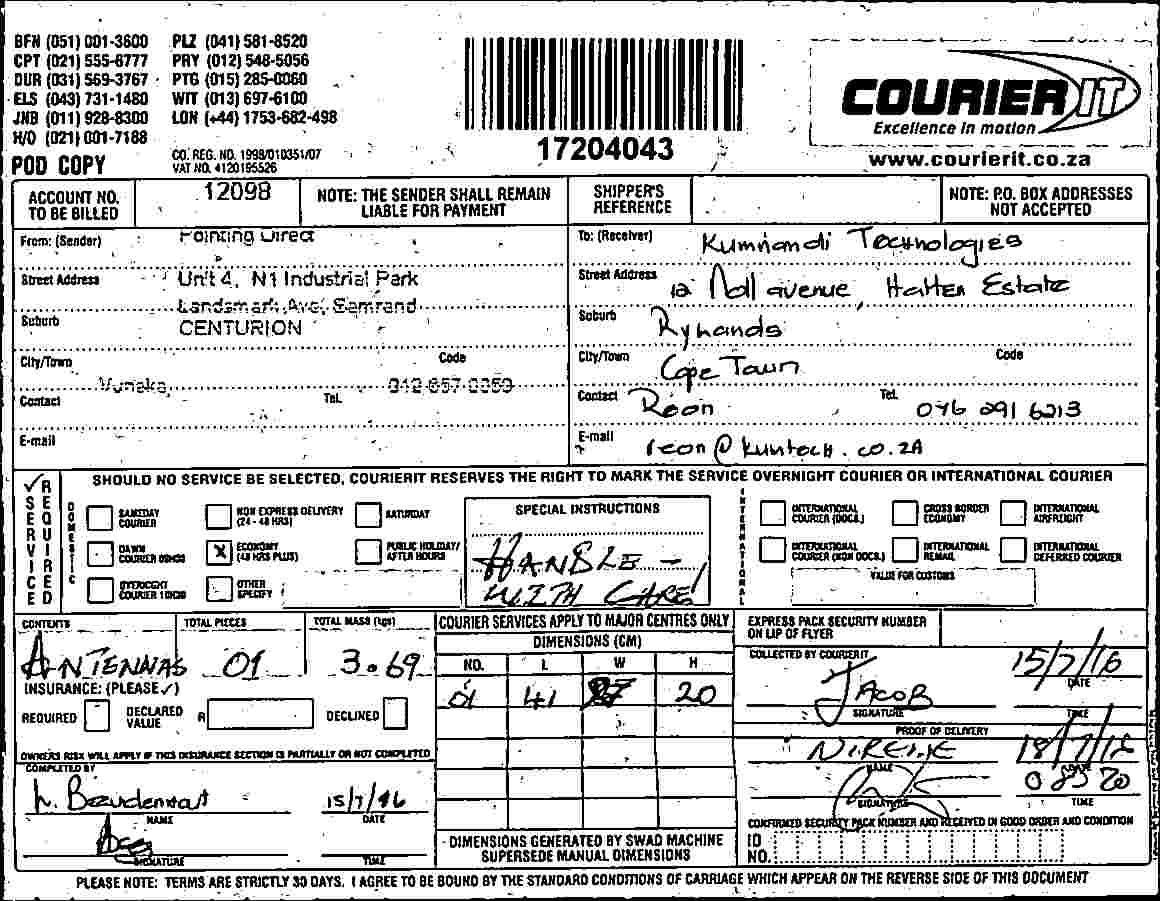 BFN (051) 001-3600 PLZ (041) 581-8520
CPT (021) 555-6777 PRY (012) 548-5056
DUR (031) 569-3767 PTG (015) 285-0060
ELS (043) 731-1480 WIT (013) 697-6100
JNB (011) 928-8300 LON (+44) 1753-682-498
H/O (021) 001-7188
POD COPY
CO. REG. NO. 1998/010351/07
VAT NO. 4120195526
17204043
COURIER IT
Excellence in motion
www.courierit.co.za
ACCOUNT NO. TO BE BILLED
12098
NOTE: THE SENDER SHALL REMAIN LIABLE FOR PAYMENT
SHIPPER'S REFERENCE
NOTE: P.O. BOX ADDRESSES NOT ACCEPTED
From: (Sender) Pointing Direct
Street Address Unit 4, N1 Industrial Park
Landsmark Ave, Samrand
Suburb CENTURION
City/Town Code
Contact Tel.
E-mail
To: (Receiver) Kumnandi Technologies
Street Address 12 Noll avenue, Hatten Estate
Suburb Rylands
City/Town Cape Town Code
Contact Reon Tel. 076 291 6213
E-mail reon@kumtech.co.ZA
SERVICE REQUIRED
SHOULD NO SERVICE BE SELECTED, COURIERIT RESERVES THE RIGHT TO MARK THE SERVICE OVERNIGHT COURIER OR INTERNATIONAL COURIER
DOMESTIC
SAMEDAY COURIER
NON EXPRESS DELIVERY (24 - 48 HRS)
SATURDAY
DAWN COURIER 09H00
ECONOMY (48 HRS PLUS)
PUBLIC HOLIDAY/ AFTER HOURS
OVERNIGHT COURIER 10H30
OTHER SPECIFY
SPECIAL INSTRUCTIONS
HANDLE -
WITH CARE!
INTERNATIONAL
INTERNATIONAL COURIER (DOCS.)
CROSS BORDER ECONOMY
INTERNATIONAL AIRFREIGHT
INTERNATIONAL COURIER (NON DOCS.)
INTERNATIONAL REMAIL
INTERNATIONAL DEFERRED COURIER
VALUE FOR CUSTOMS
CONTENTS TOTAL PIECES TOTAL MASS (kgs)
ANTENNAS 01 3.69
INSURANCE: (PLEASE ✓)
REQUIRED DECLARED VALUE R DECLINED
OWNERS RISK WILL APPLY IF THIS INSURANCE SECTION IS PARTIALLY OR NOT COMPLETED
COMPLETED BY
15/7/16
NAME DATE
SIGNATURE TIME
COURIER SERVICES APPLY TO MAJOR CENTRES ONLY
DIMENSIONS (CM)
NO. L W H
01 41 20
DIMENSIONS GENERATED BY SWAD MACHINE SUPERSEDE MANUAL DIMENSIONS
EXPRESS PACK SECURITY NUMBER ON LIP OF FLYER
COLLECTED BY COURIERIT
JACOB 15/7/16
SIGNATURE DATE
TIME
PROOF OF DELIVERY
18/7/16
NAME DATE
SIGNATURE TIME
CONFIRMED SECURITY PACK NUMBER AND RECEIVED IN GOOD ORDER AND CONDITION
ID NO.
PLEASE NOTE: TERMS ARE STRICTLY 30 DAYS. I AGREE TO BE BOUND BY THE STANDARD CONDITIONS OF CARRIAGE WHICH APPEAR ON THE REVERSE SIDE OF THIS DOCUMENT